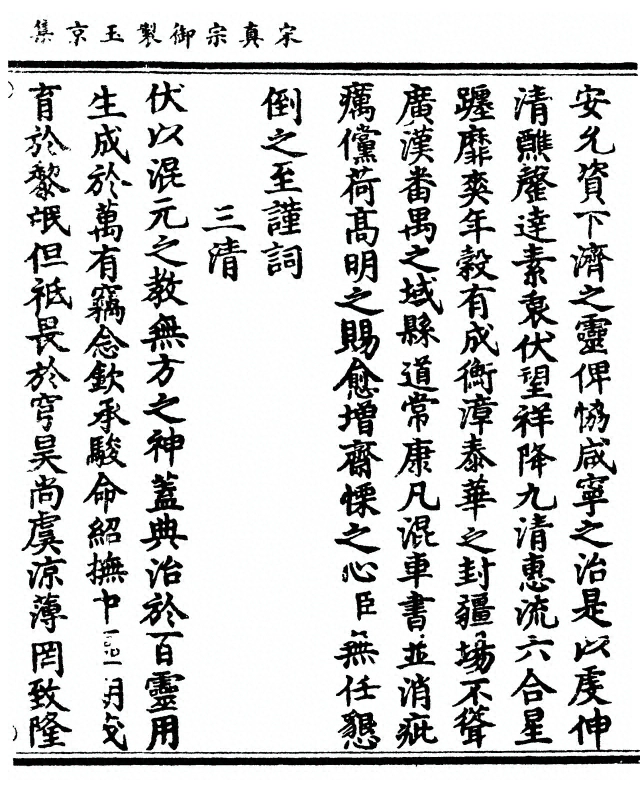 宋真宗御製玉京集
安允資下濟之靈俾恊咸寧之治是以虔伸
清醮罄達素衷伏望祥降九清惠流六合星
躔靡爽年穀有成衡漳泰華之封疆埸不聳
廣漢番禺之域縣道常康凡混車書並消疵
癘儻荷髙明之賜愈增齋慄之心臣無任懇
倒之至謹詞
三清
伏以混元之教無方之神蓋典治於百靈用
生成於萬有竊念欽承駿命紹撫中區
育於黎氓但祗畏於穹昊尚虞涼薄罔致隆